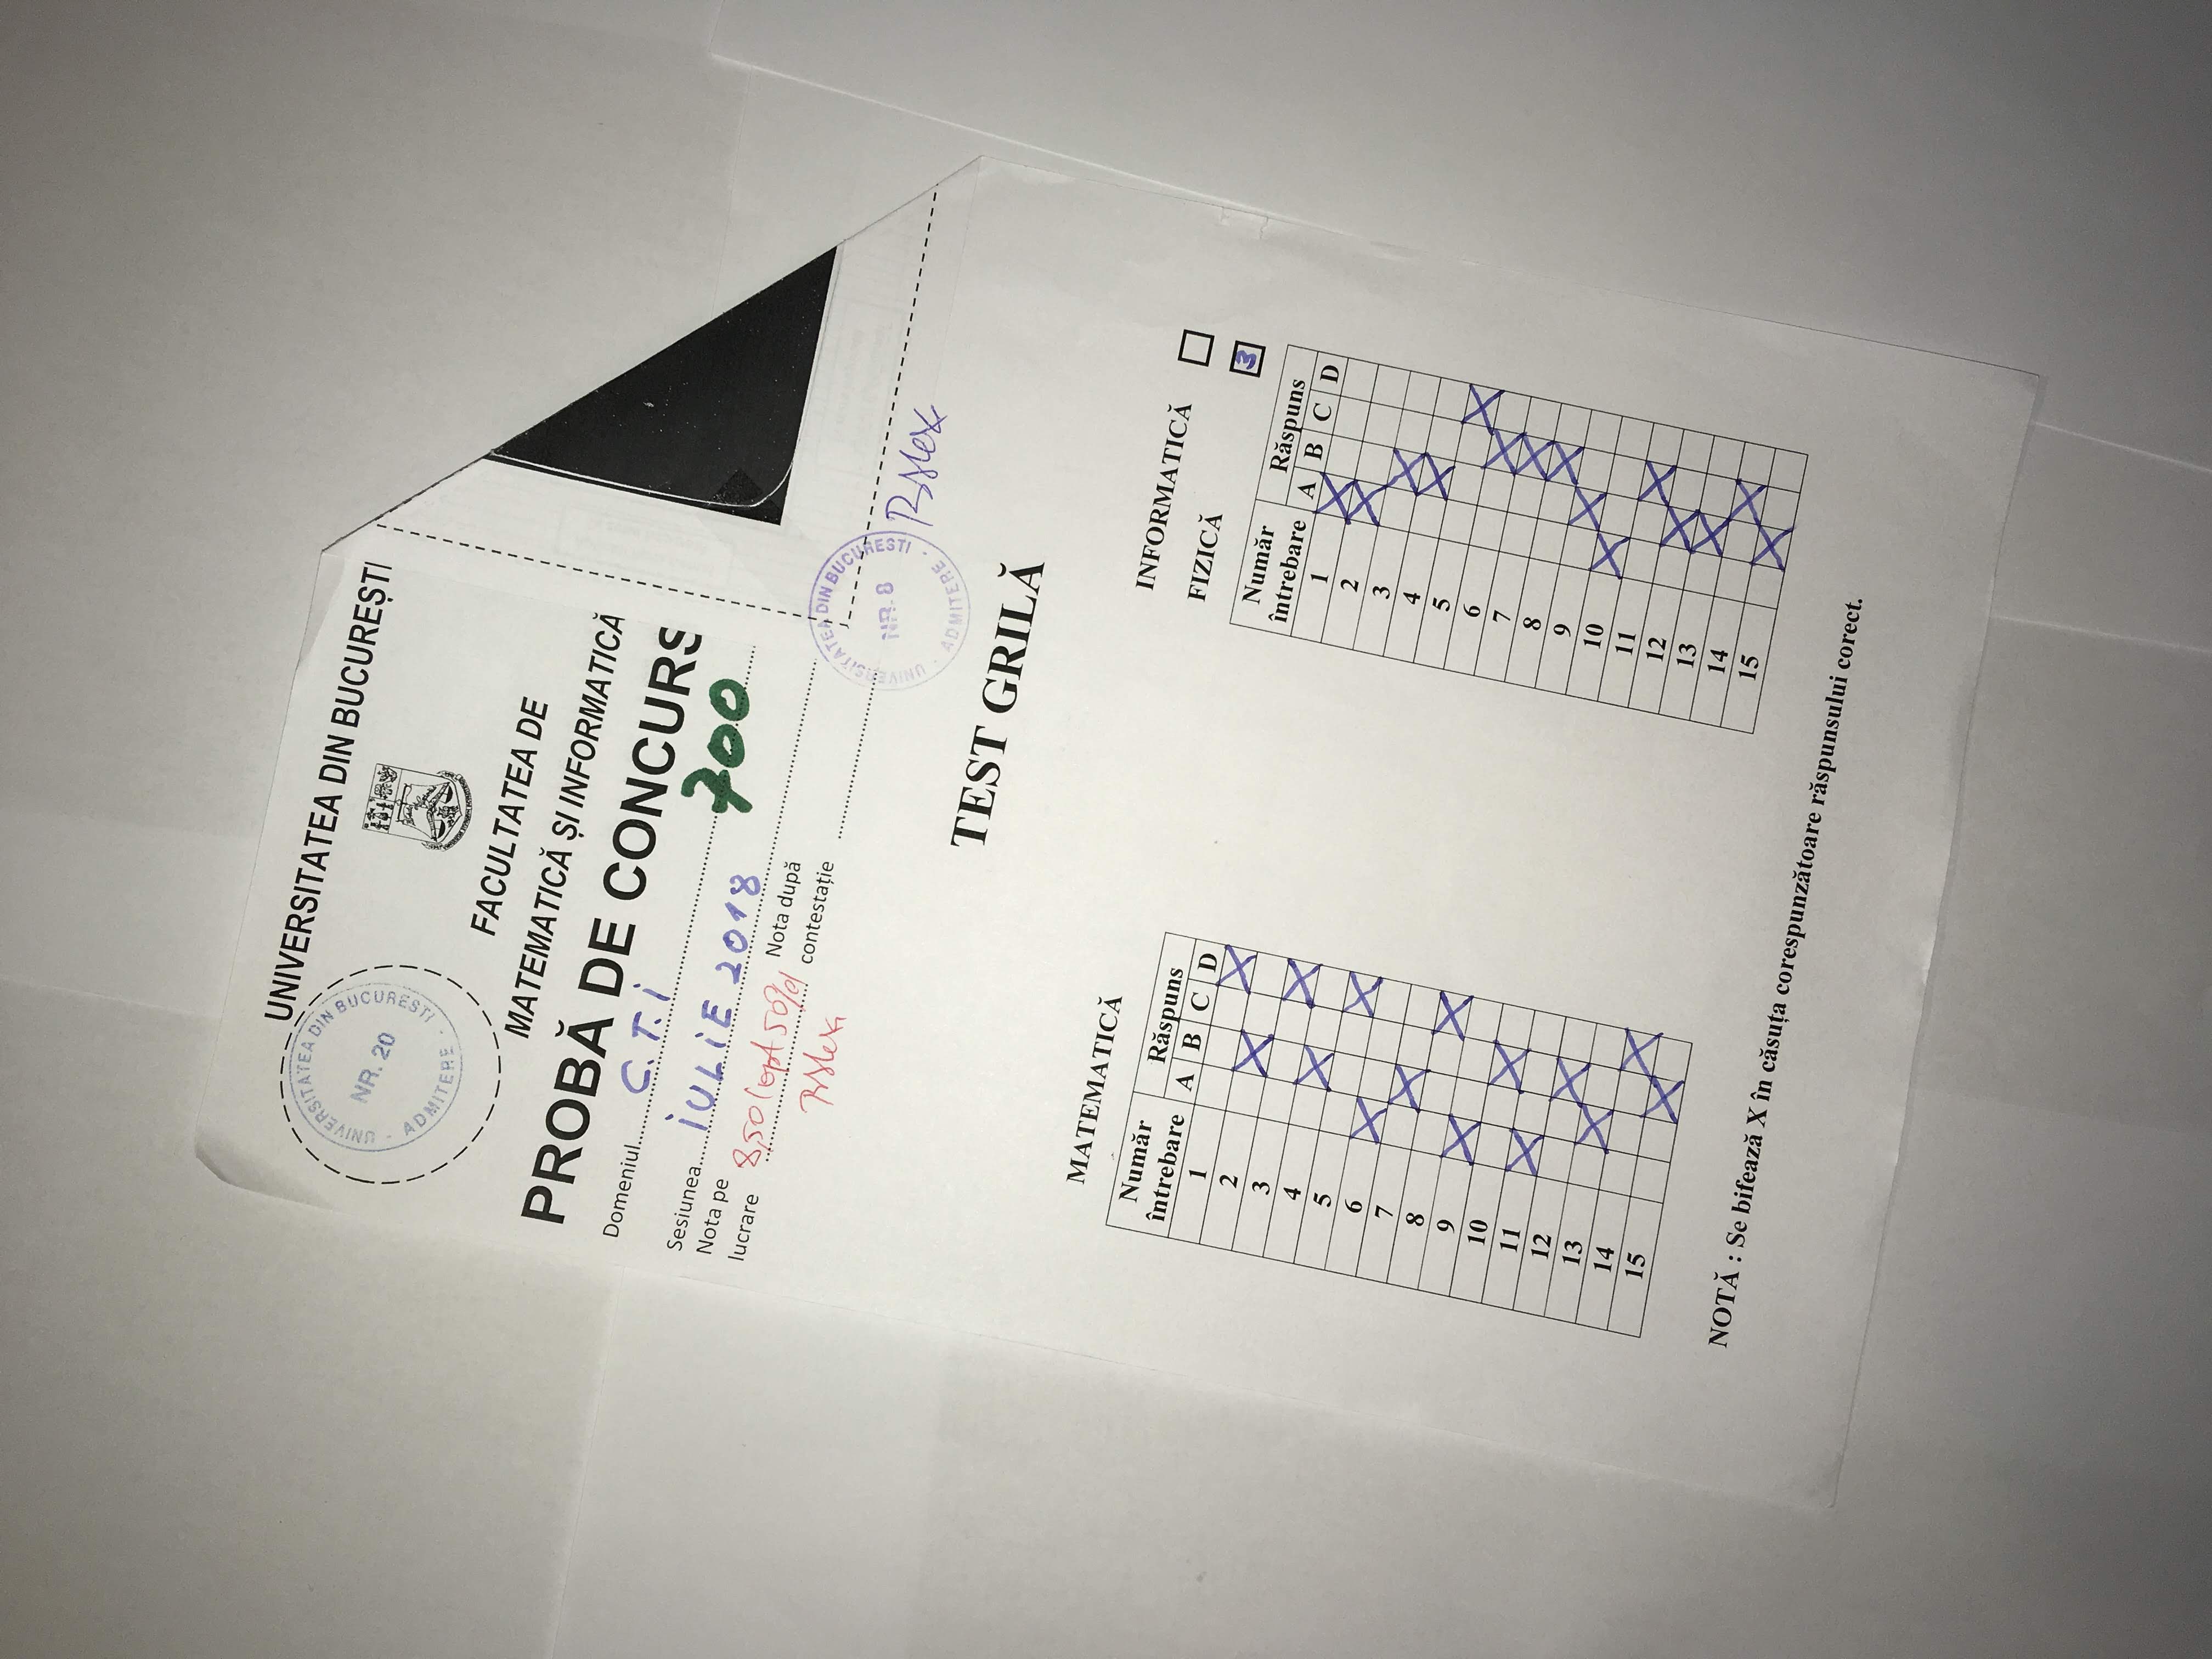 UNIVERSITATEA DIN BUCUREȘTI
UNIVERSITATEA DIN BUCURESTI
NR. 20
ADMITERE
FACULTATEA DE
MATEMATICĂ ȘI INFORMATICĂ
PROBĂ DE CONCURS
Domeniul C.T.I
700
Sesiunea IULIE 2018
Nota pe
lucrare 8,50 (opt 50%)
Nota după
contestație
UNIVERSITATEA DIN BUCURESTI
NR. 8
ADMITERE
TEST GRILĂ
MATEMATICĂ
Număr
întrebare
Răspuns
A B C D
1 X
2 X
3 X
4 X
5 X
6 X
7 X
8 X
9 X
10 X
11 X
12 X
13 X
14 X
15 X
INFORMATICĂ
FIZICĂ 3
Număr
întrebare
Răspuns
A B C D
1 X
2 X
3 X
4 X
5 X
6 X
7 X
8 X
9 X
10 X
11 X
12 X
13 X
14 X
15 X
NOTĂ : Se bifează X în căsuța corespunzătoare răspunsului corect.